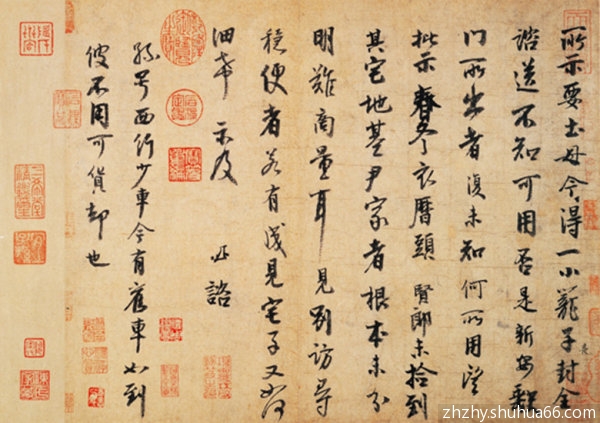 所示要土母今得一小籠子封全
諮送不知可用否是新安缺
门所出者復未知何所用望
批示春冬衣曆頭賢郎未捡到
其宅地基尹家者根本未分
明難商量耳見別訪尋
穩便者若有成見宅子又如何
細希示及
此諮
孫号西行少車今有舊車如到
彼不用可貨却也
zhzhy.shuhua66.com